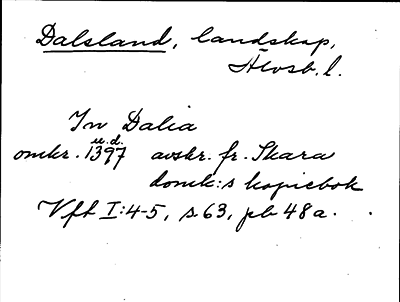 Dalsland, landskap,
Älvsb. l.
In Dalia
u.d.
omkr. 1397 avskr. fr. Skara
domk:s kopiebok
Vft I:4-5, s 63, pb 48a.